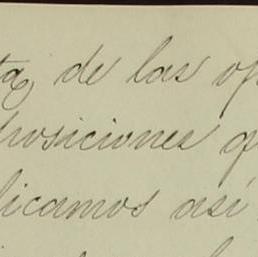 ta, de las op
posiciones q
licamos así